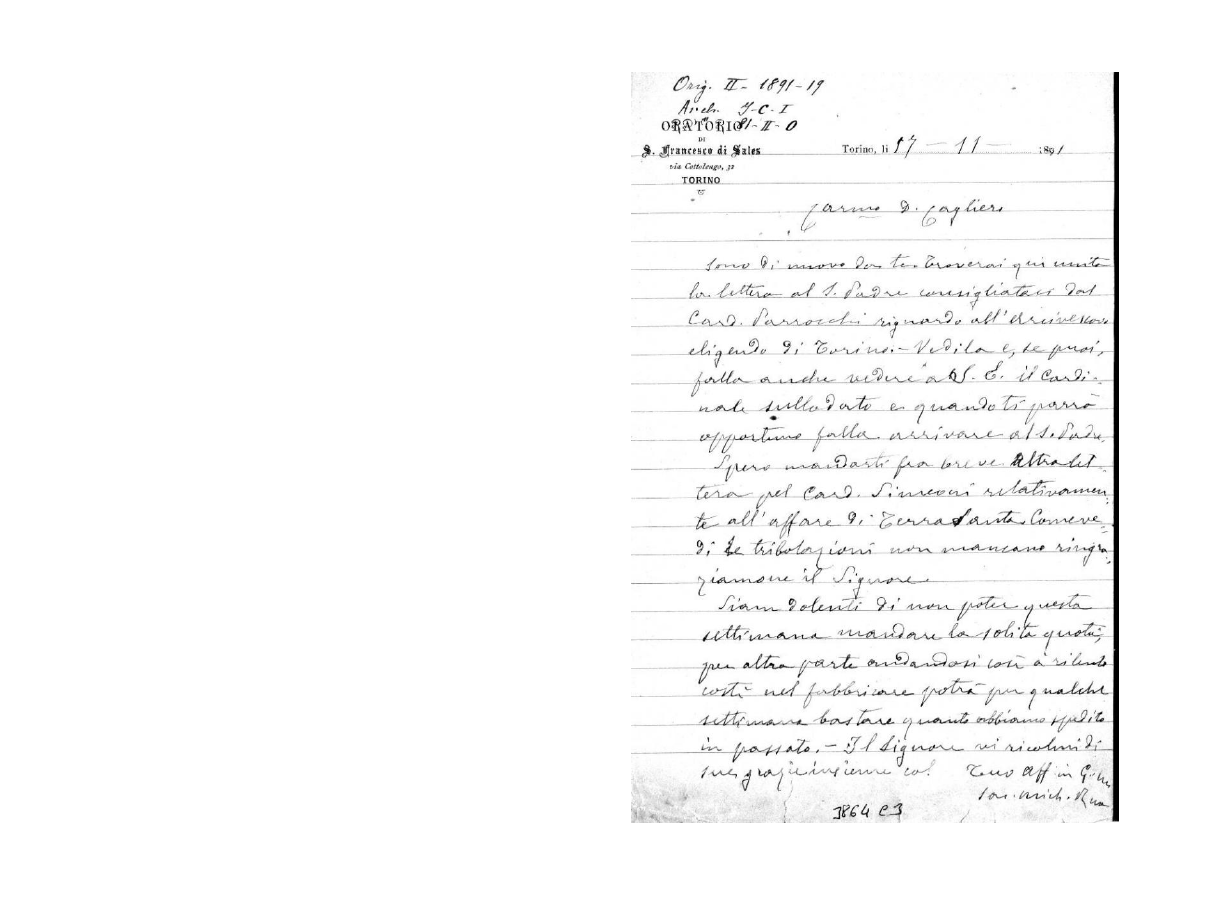 Orig. II - 1891-19
Arch. J-C-I
ORATORIO 81-II-O
DI
S. Francesco di Sales
via Cottolengo, 32
TORINO
Torino, li 17 - 11 - 1891
Carmo D. Cagliero
Sono di nuovo da te. Troverai qui unita
la lettera al S. Padre consigliataci dal
Card. Parrocchi riguardo all'Arcivescovo
eligendo di Torino. - Vedila e, se puoi,
falla anche vedere a S. E. il Cardi-
nale sullodato e quando ti parrà
opportuno falla arrivare al S. Padre.
Spero mandarti fra breve altra let-
tera pel Card. Simeoni relativamen-
te all'affare di Terra Santa. Come ve-
di le tribolazioni non mancano ringra-
ziamone il Signore.
Siam dolenti di non poter questa
settimana mandare la solita quota;
per altra parte andandosi così a rilento
costì nel fabbricare potrà per qualche
settimana bastare quanto abbiamo spedito
in passato. - Il Signore vi ricolmi di
sue grazie insieme col Tuo Aff in G. M
Sac. Mich. Rua
3864 C3